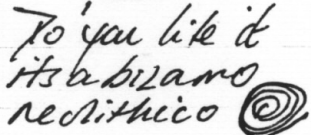 Do you like it
its a bizarro
neolithico